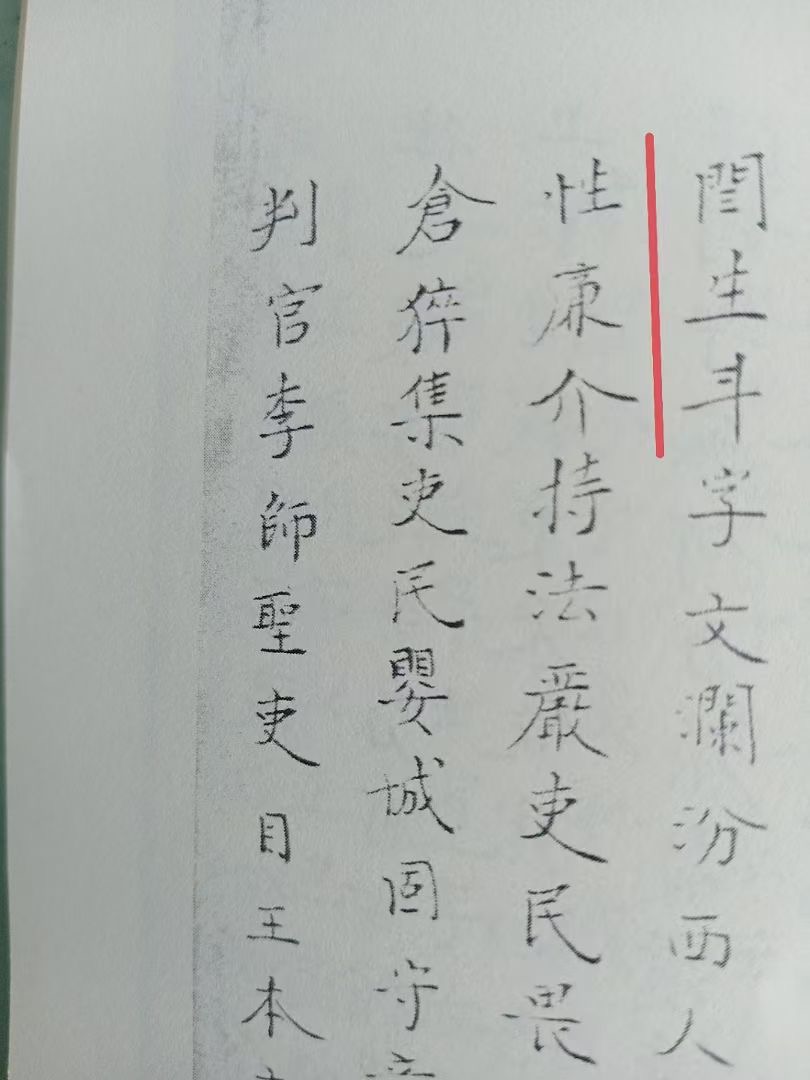 閆生斗字文瀾汾西人
性廉介持法嚴吏民畏
倉猝集吏民嬰城固守
判官李師聖吏目王本